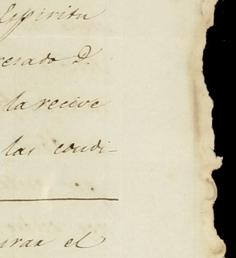 Espiritu
cesado D.
la recive
las condi-
urar el